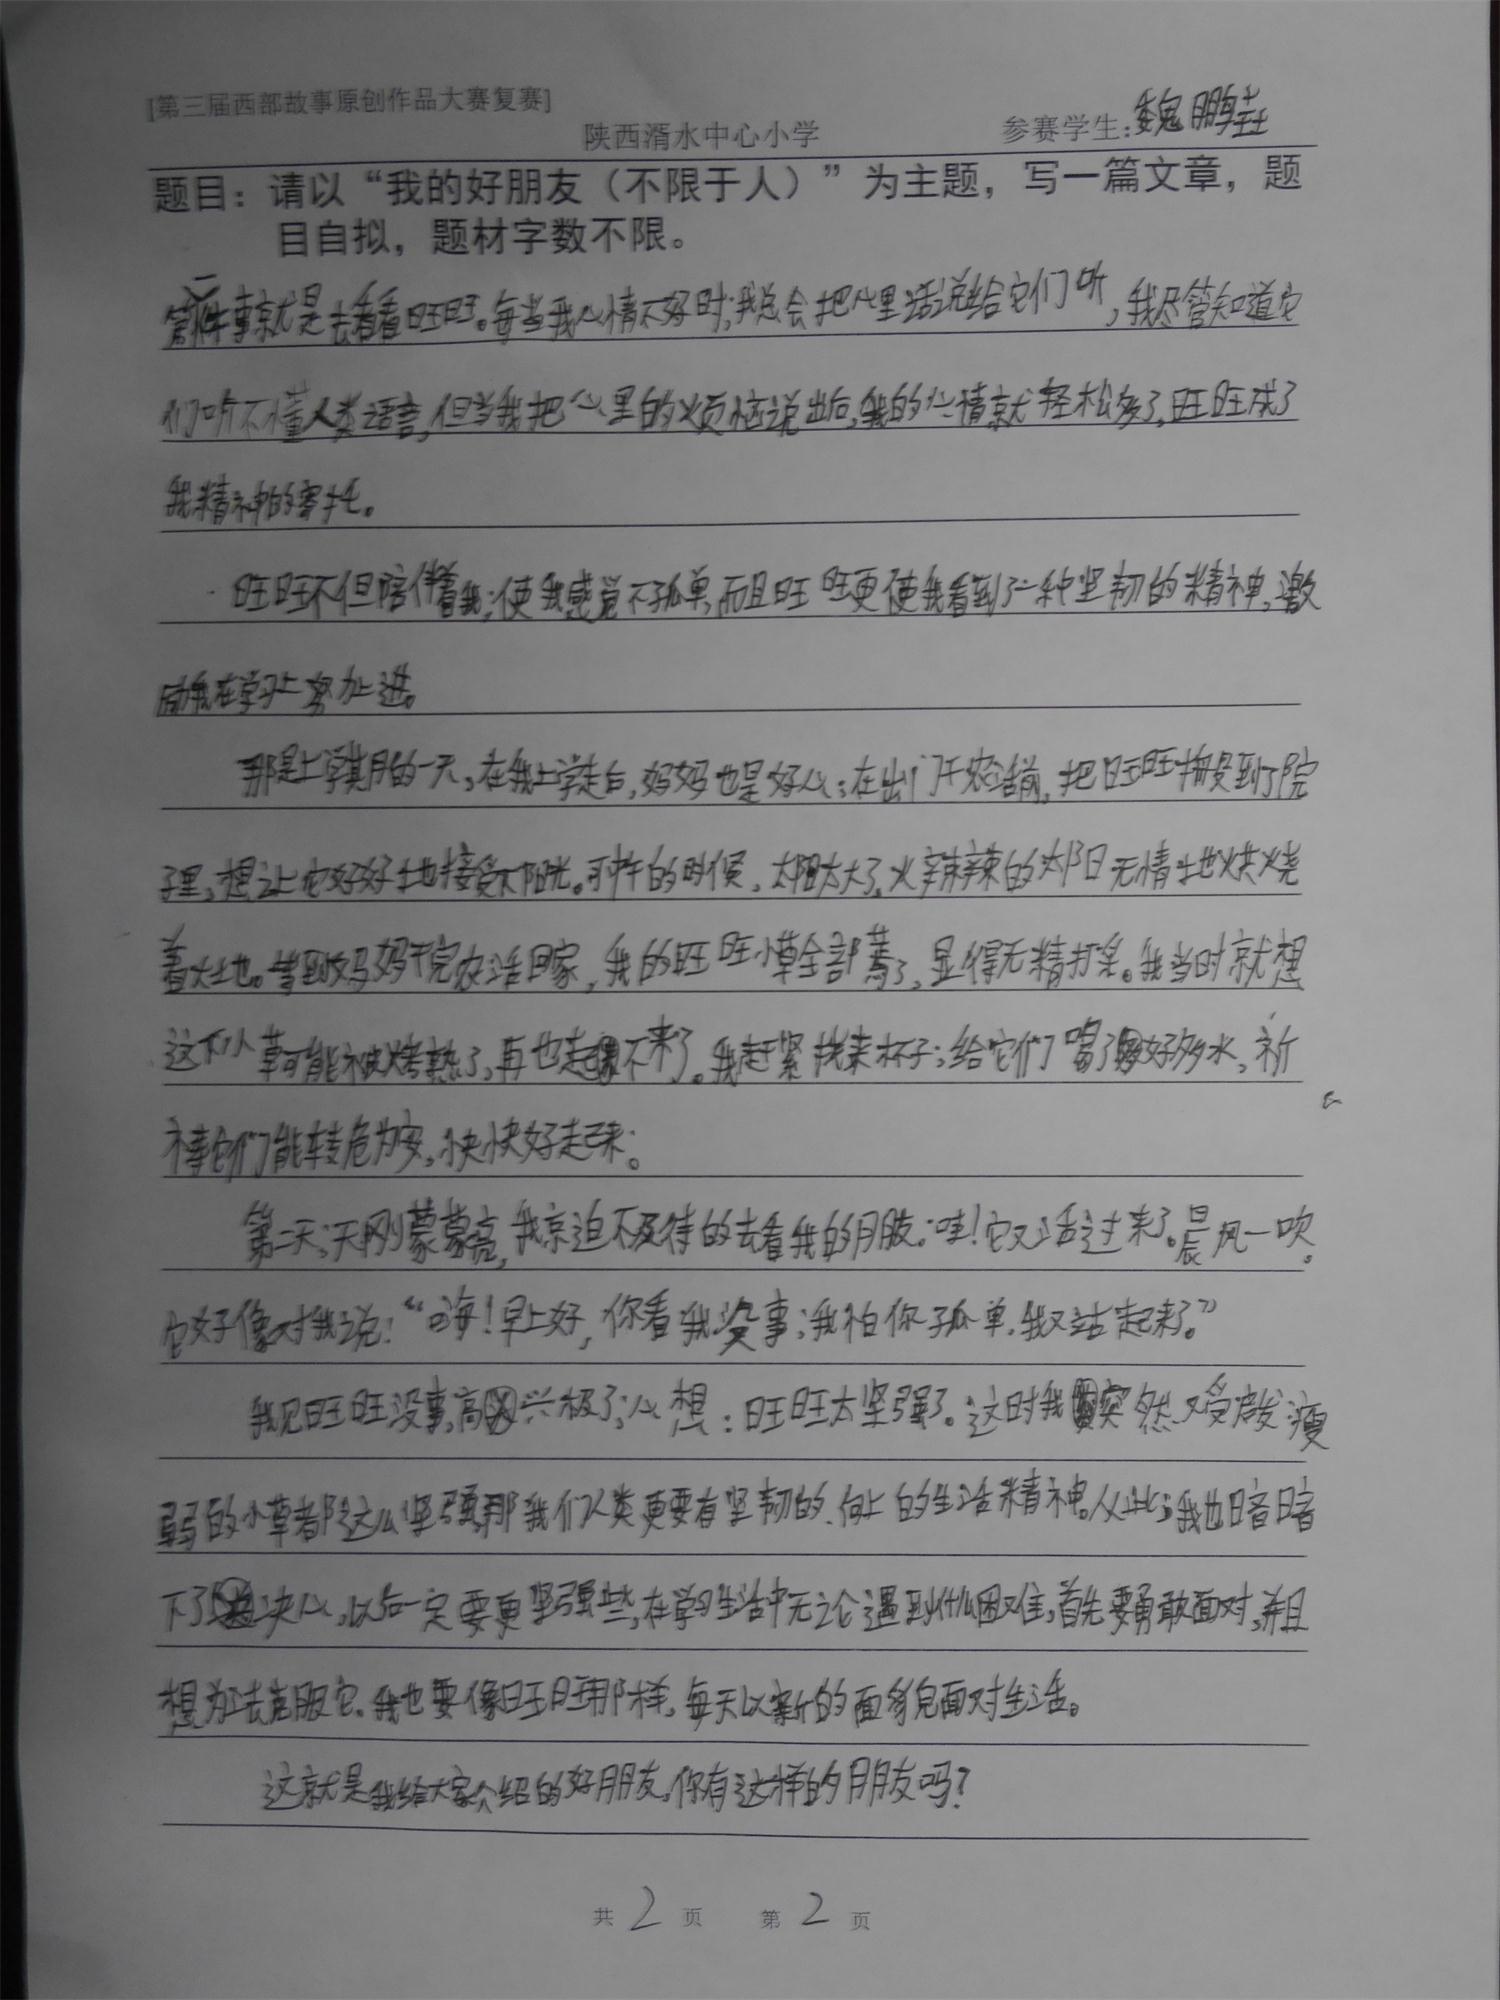 [第三届西部故事原创作品大赛复赛]
陕西湑水中心小学 参赛学生:魏鹏
题目：请以“我的好朋友（不限于人）”为主题，写一篇文章，题
目自拟，题材字数不限。
一件事就是去看看旺旺。每当我心情不好时，我总会把心里话说给它们听，我尽管知道它
们听不懂人类语言，但当我把心里的烦恼说出后，我的心情就轻松多了，旺旺成了
我精神的寄托。
旺旺不但陪伴着我，使我感觉不孤单，而且旺旺更使我看到了一种坚韧的精神，激
励我在学习上努力上进。
那是上学期的一天，在我上学走后，妈妈也是好心，在出门干农活前，把旺旺搬到了院
子里，想让它好好地接受阳光。可中午的时候，太阳太大了，火辣辣的太阳无情地烘烧
着大地。等到妈妈干完农活回家，我的旺旺小草全部蔫了，显得无精打采。我当时就想
这下小草可能被烤熟了，再也起不来了。我赶紧找来杯子，给它们喝了好多水，祈
祷它们能转危为安，快快好起来。
第二天，天刚蒙蒙亮，我就迫不及待的去看我的朋友。哇！它又活过来了。晨风一吹，
它好像对我说：“嗨！早上好，你看我没事，我怕你孤单，我又站起来了。”
我见旺旺没事，高兴极了，心想：旺旺太坚强了。这时我突然又受启发，瘦
弱的小草都这么坚强，那我们人类更要有坚韧的、向上的生活精神。从此，我也暗暗
下了决心，以后一定要更坚强些，在学习生活中无论遇到什么困难，首先要勇敢面对，并且
想办法克服它。我也要像旺旺那样，每天以新的面貌面对生活。
这就是我给大家介绍的好朋友，你有这样的朋友吗？
共 2 页 第 2 页